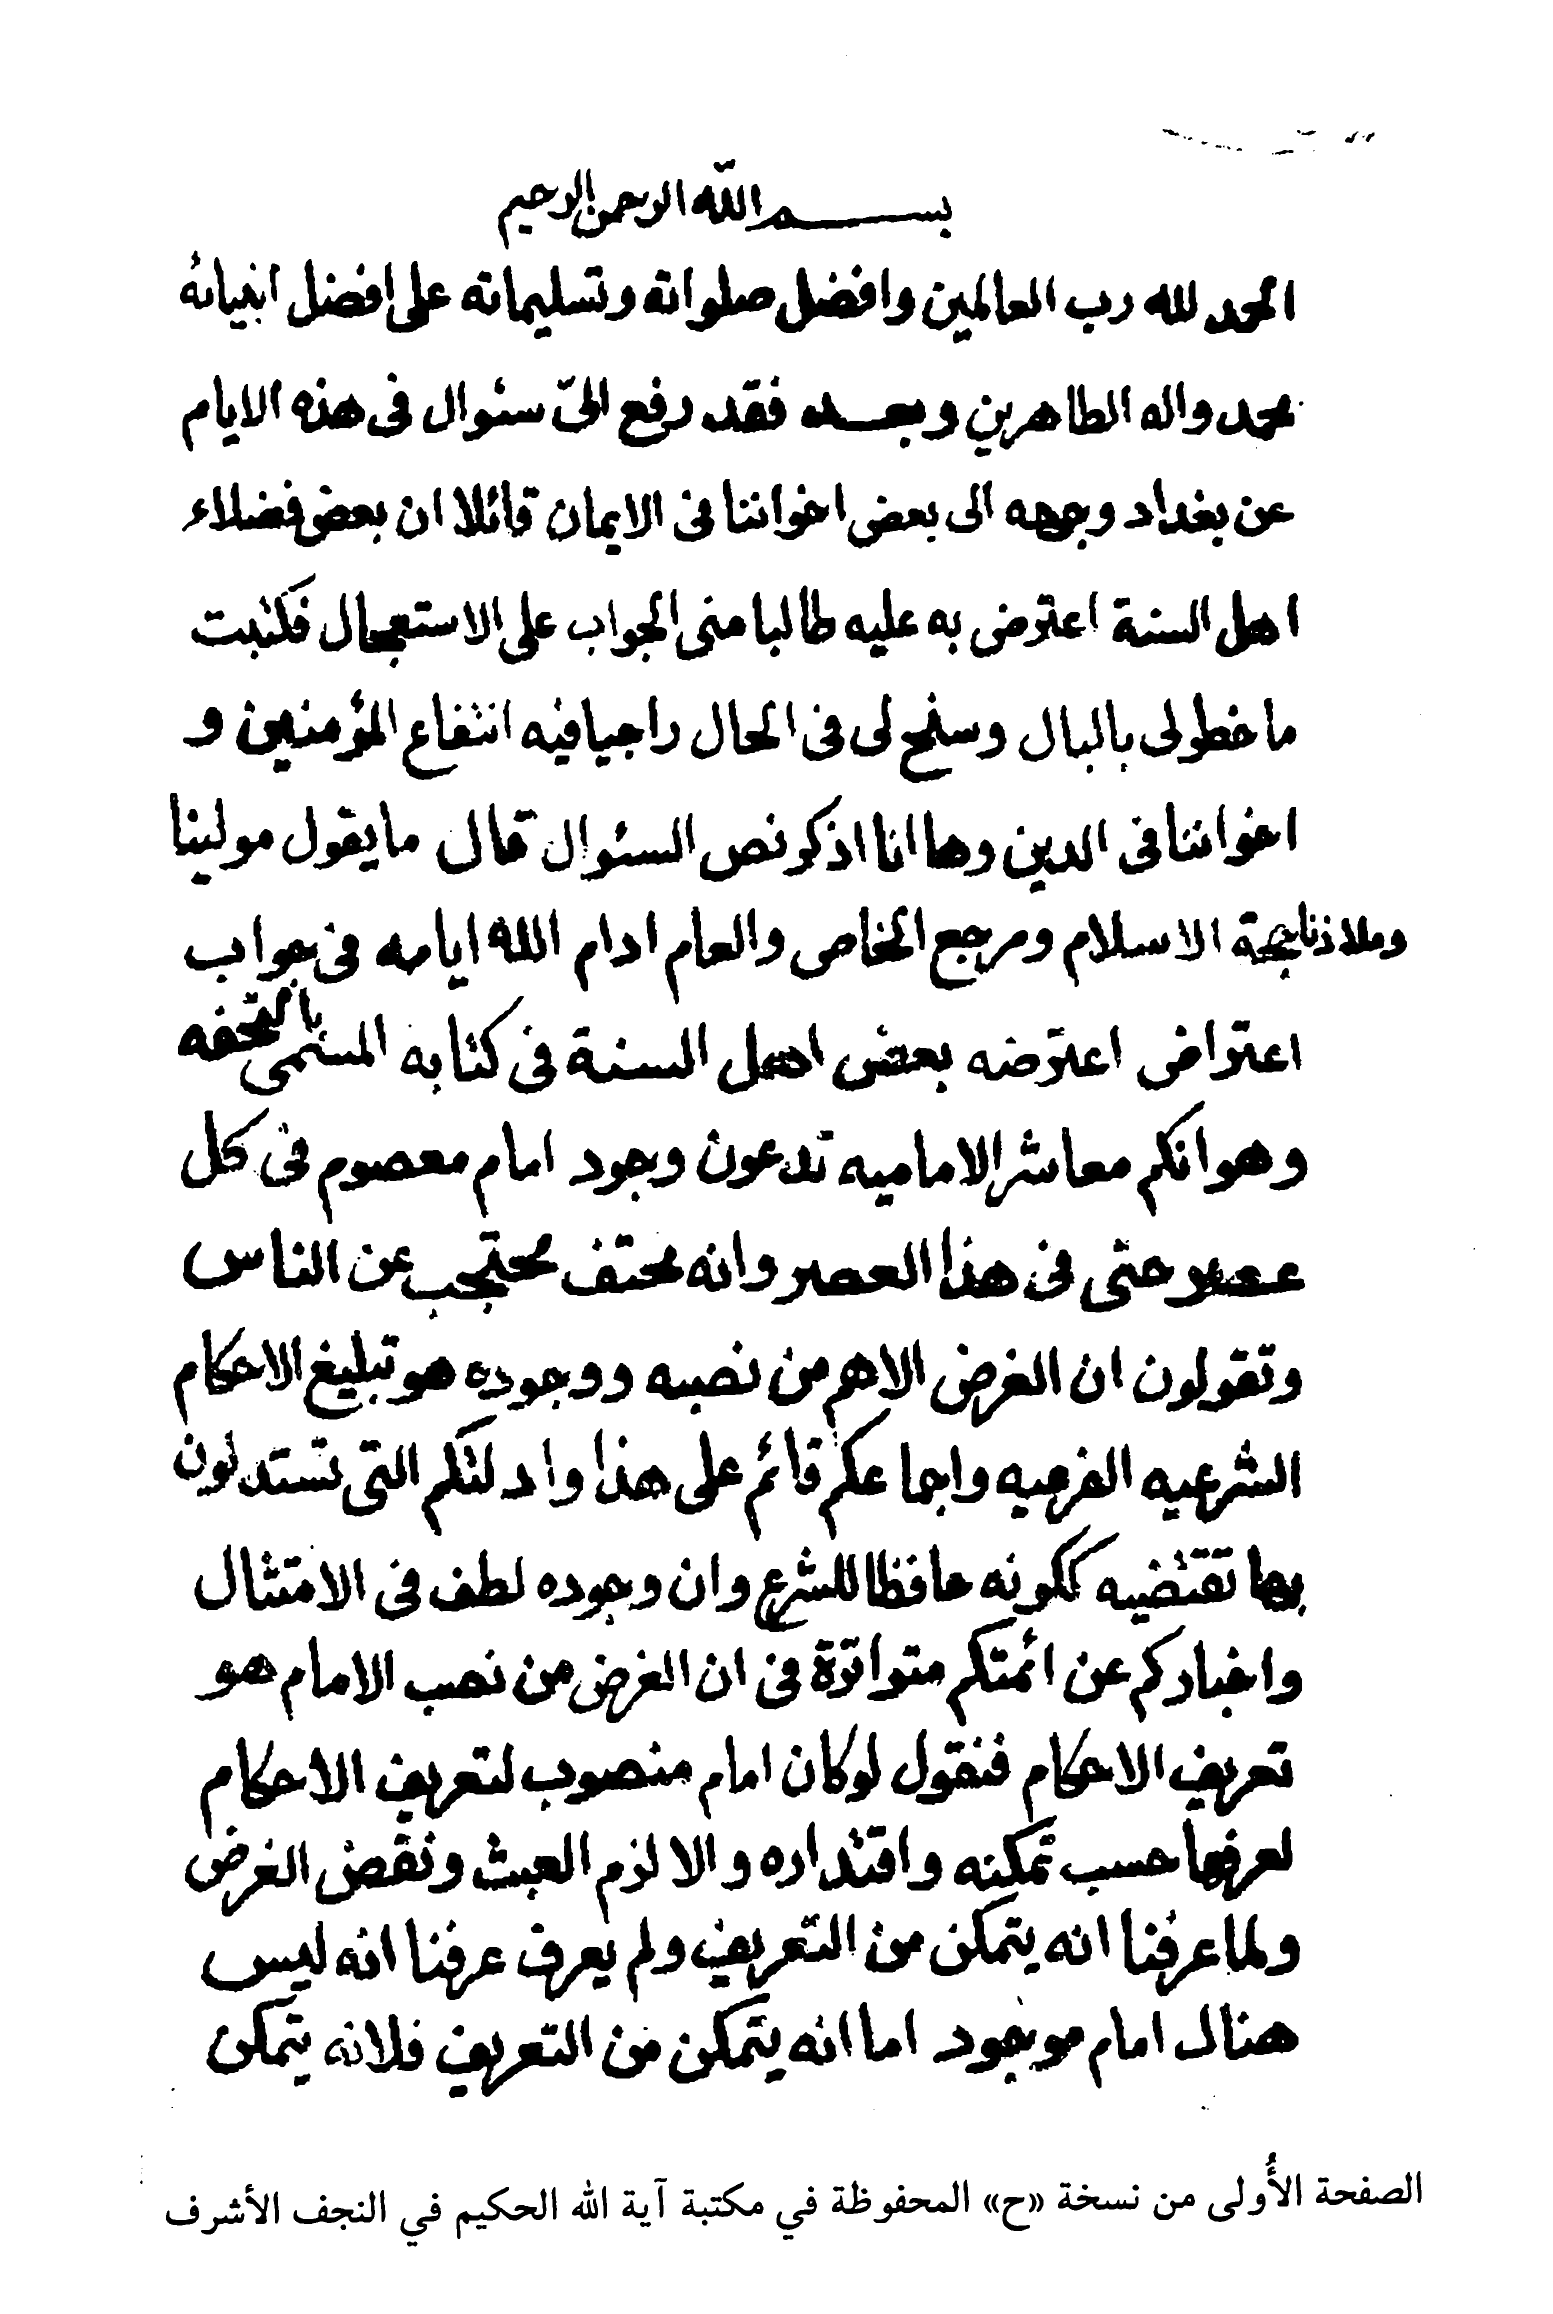 بسم الله الرحمن الرحيم
الحمد لله رب العالمين وافضل صلواته وتسليماته على افضل انبيائه
محمد واله الطاهرين وبعد فقد رفع الىّ سئوال فى هذه الايام
عن بغداد وجهه الى بعض اخواننا فى الايمان قائلا ان بعض فضلاء
اهل السنة اعترض به عليه طالبا منى الجواب على الاستعجال فكتبت
ما خطر لى بالبال وسنح لى فى الحال راجيا فيه انتفاع المؤمنين و
اخواننا فى الدين وها انا اذكر نص السئوال قال ما يقول مولينا
وملاذنا حجة الاسلام ومرجع الخاص والعام ادام الله ايامه فى جواب
اعتراض اعترضه بعض اهل السنة فى كتابه المسمى بالتحفه
وهو انكم معاشر الاماميه تدعون وجود امام معصوم فى كل
عصر حتى فى هذا العصر وانه مختف محتجب عن الناس
وتقولون ان الغرض الاهم من نصبه ووجوده هو تبليغ الاحكام
الشرعيه الفرعيه واجماعكم قائم على هذا وادلتكم التى تستدلون
بها تقتضيه ككونه حافظا للشرع وان وجوده لطف فى الامتثال
واخباركم عن ائمتكم متواترة فى ان الغرض من نصب الامام هو
تعريف الاحكام فنقول لو كان امام منصوب لتعريف الاحكام
لعرفها حسب تمكنه واقتداره والا لزم العبث ونقض الغرض
ولما عرفنا انه يتمكن من التعريف ولم يعرف عرفنا انه ليس
هناك امام موجود اما انه يتمكن من التعريف فلانه يتمكن
الصفحة الأُولى من نسخة «ح» المحفوظة في مكتبة آية الله الحكيم في النجف الأشرف